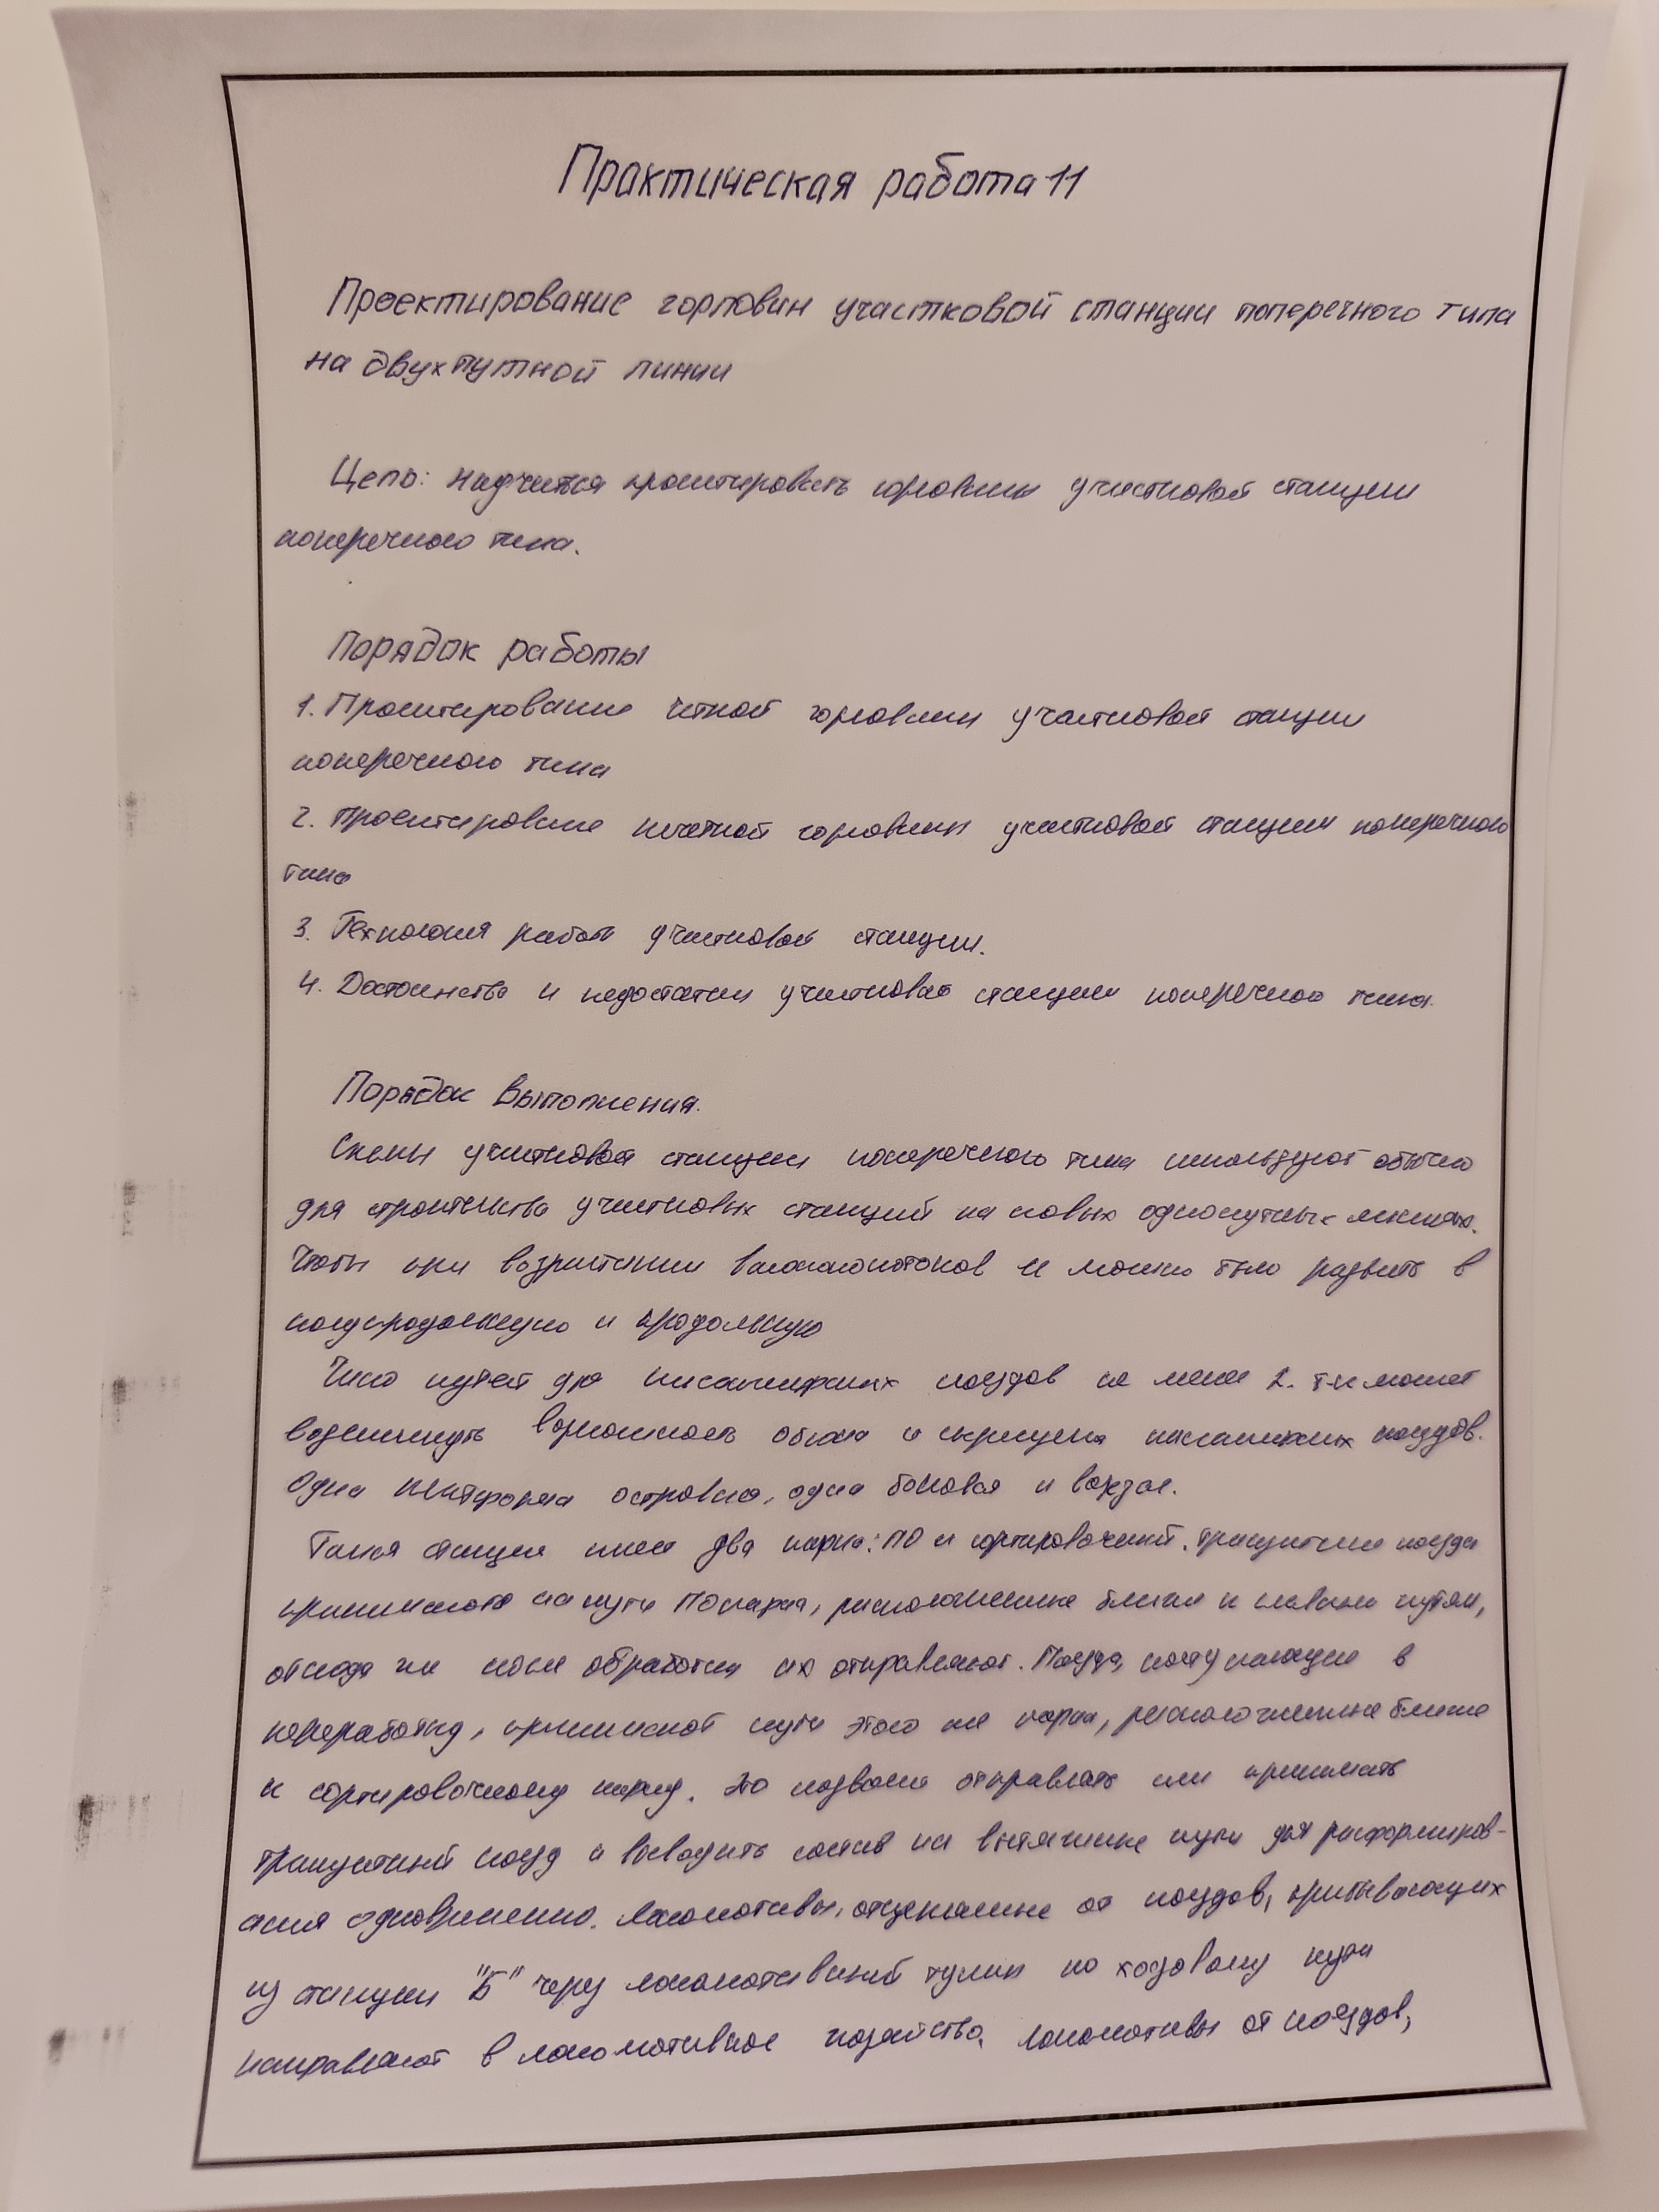 Практическая работа 11
Проектирование горловин участковой станции поперечного типа
на двухпутной линии
Цель: Научится проектировать горловины участковой станции
поперечного типа.
Порядок работы
1. Проектирование четной горловины участковой станции
поперечного типа
2. Проектирование нечетной горловины участковой станции поперечного
типа
3. Технология работы участковой станции.
4. Достоинства и недостатки участковой станции поперечного типа.
Порядок выполнения.
Схемы участковой станции поперечного типа используют обычно
для строительства участковых станций на новых однопутных линиях.
Чтобы при возрастании вагонопотоков её можно было развить в
полупродольную и продольную
Число путей для пассажирских поездов не менее 2. т-к может
возникнуть возможность обгона и скрещения пассажирских поездов.
Одна платформа островная, одна боковая и вокзал.
Такая станция имеет два парка: ПО и сортировочный. Транзитные поезда
принимают на пути ПО парка, расположенные ближе к главным путям,
отсюда же после обработки их отправляют. Поезда, поступающие в
переработку, принимают пути этого же парка, расположенные ближе
к сортировочному парку. Это позволяет отправлять или принимать
транзитный поезд и выводить состав на вытяжные пути для расформиров-
ания одновременно. Локомотивы, отцепленные от поездов, прибывающих
из станции "Б" через локомотивный тупик по ходовому пути
направляют в локомотивное хозяйство, локомотивы от поездов,